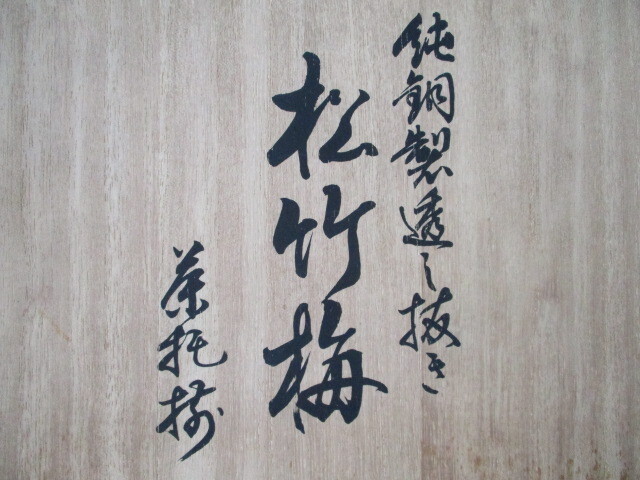 純銅製透し抜き
松竹梅
茶托揃